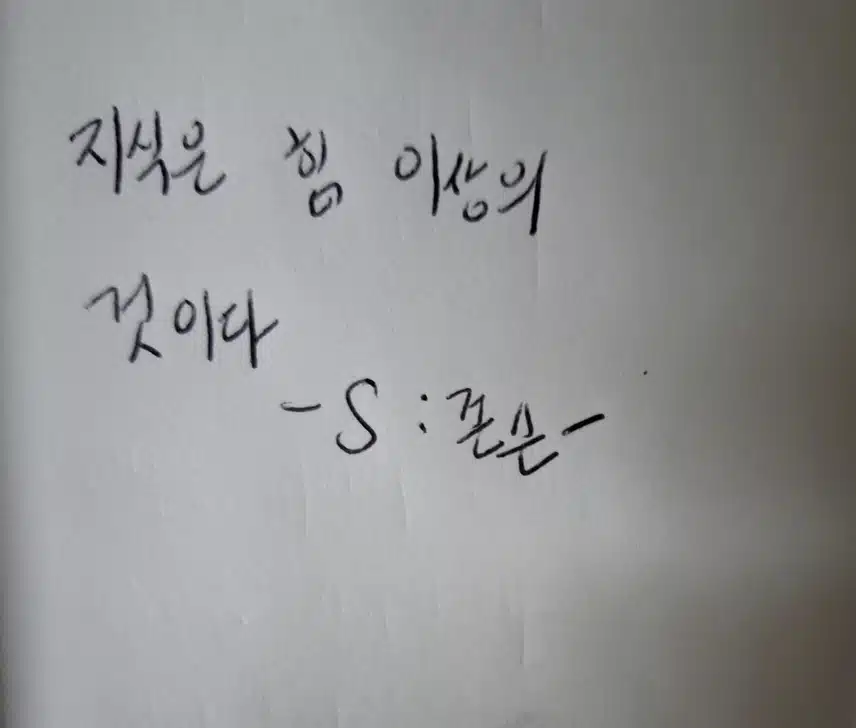 지식은 힘 이상의
것이다
-S:존슨-